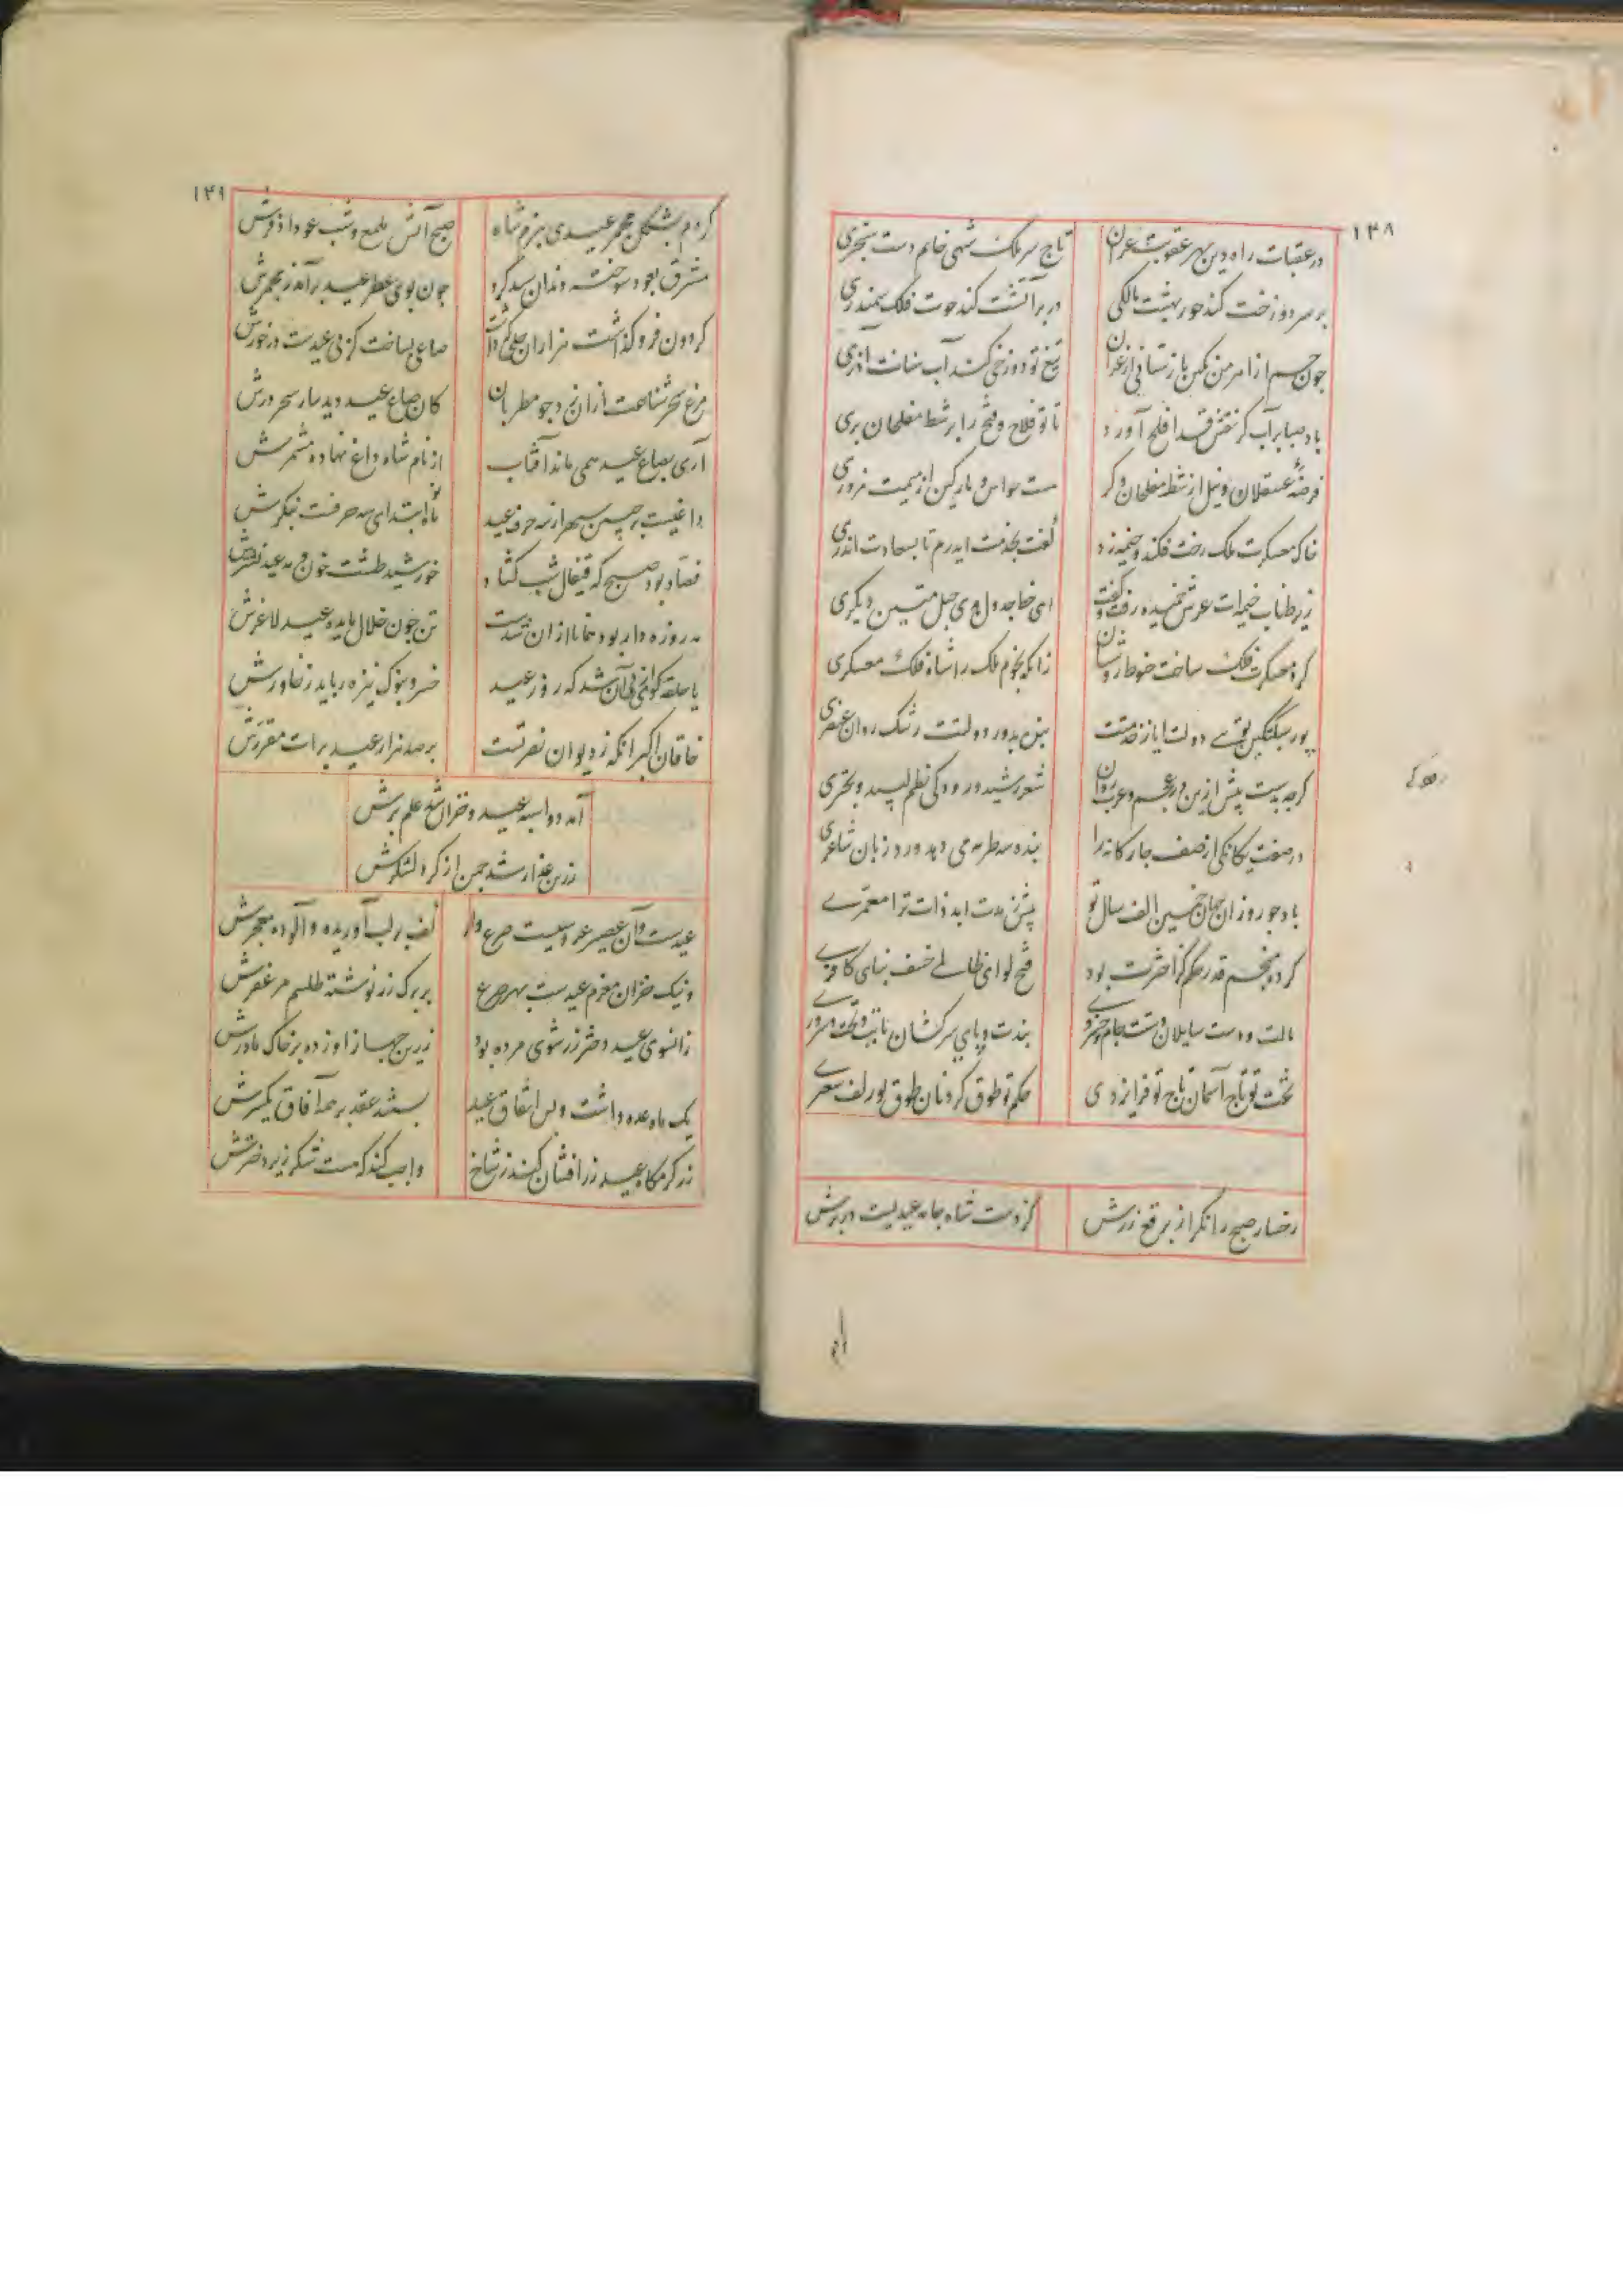 ۱۳۸
در عقبات راه دین بهر عقوبت عران تاج سر ملک شهی خاتم دست سنجری
بر سر دوزخت کند حور بهشت مالکی در بر آتشت کند حوت فلک سمندری
تیغ تو دوزخی کند آب سنانت آذری
باد صبا بر آب کر نقش قد افلح آورد تا تو فلاح و فتح را بر شط مفلحان بری
فرضهٔ عسقلان و نیل از شط مفلحان و کر
خاک معسکرت ملک رخت فکند و خیمه زد گفت بخدمت ایدرم تا بسعادت اندری
زیر طناب خیمه‌ات عرش خمیده رفت و گفت ای خط جدول هدی حبل متین دیگری
کرد معسکرت فلک ساخت حنوط اختران زانکه نجوم ملک را شاه فلک معسکری
پور سبکتگین توئی دولت ایاز خدمتت بین بدور دولتت رشک روان عنصری
کرچه بدست پیش ازین در عجم و عرب روان شعر رشید و رودکی نظم لبید و بحتری
در صفت یکانکی از صف چارکانه را بنده سه طربه می دهد ورد زبان شاعری
باد چو روز آن جهان خمسین الف سال تو پیش ز مدت ابد ذات ترا معمری
کرده منجم قدر حکم کز اخترت بود فتح لوای ظالمی خسف بنای کافری
مالت و دست سایلان دستت و جام خسروی بندت و پای سرکشان پایت و تخت سروری
تخت تو تاج آسمان تاج تو فر ایزدی حکم تو طوق کردنان طوق تو زلف سعتری
رخسار صبح را نکر از برقع زرش کز دست شاه جامه عیدیست در برش
۱۳۹
کردم بشکل مجمر عیدی ببزم شاه صبح آتش ملمع و شب عود اذفرش
مشرق بعود سوخته دندان سپید کرد چون بوی عطر عید برآمد ز مجمرش
صاعی بساخت کز پی عیدست درخورش
مرغ سحر شناعت ازان زد چو مطربان کان صاع عید دید بیار سحر درش
آری بصاع عید همی ماند آفتاب از نام شاه داغ نهاده مشهرش
داغیست بر جبین سپهر از سه حرف عید ماه ابتدای سه حرفست بنکرش
فصاد بود صبح که قیفال شب کشاد خورشید طشت خون و مه عید نشترش
مه روزه دار بود همانا ازان شدست تن چون خلال مایده عید لاغرش
یا حلقه کوئی از پی آن شد که روز عید خسرو بنوک نیزه رباید ز خاورش
خاقان اکبر آنکه ز دیوان نصرتست بر صد هزار عید برات مقررش
آمد دو اسبه عید و خزان شد علم برش
زرین عذار شد چمن از کرد لشکرش
عیدست و آن عصیر عروسیست صرع دار کف بر لب آوریده و آلوده معجرش
و نیک خزان معزم عیدست بهر صرع بر برک رز نوشته طلسم مزعفرش
زانسوی عید دختر رز شوی مرده بود زرین جهاز او زده بر خاک مادرش
یک ماه عده داشت و پس اتفاق عید بستند عقد بر همه آفاق یکسرش
زر کرم کاه عید زر افشان کند ز شاخ واجب کند که هست شکر زیر دخترش